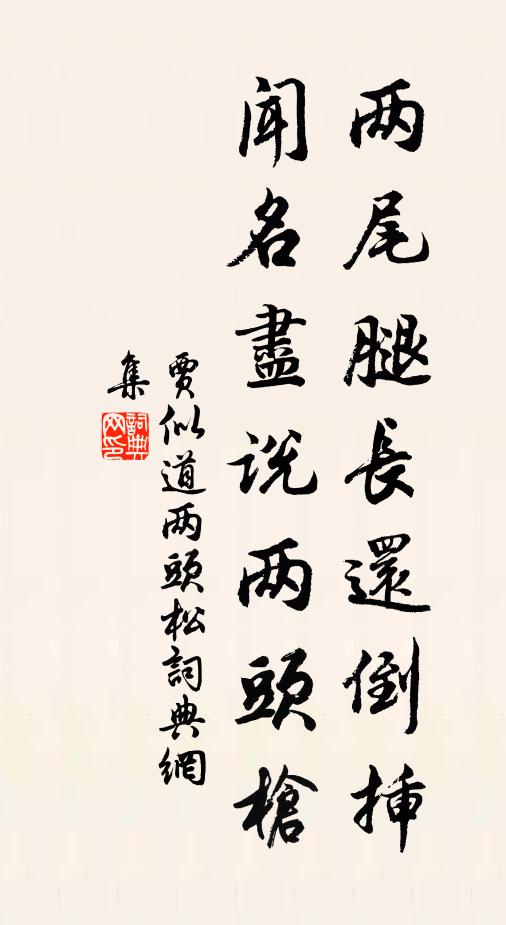 两尾腿長還倒揷
聞名盡说两頭槍
賈似道两頭松詞典網
集
詞典网印